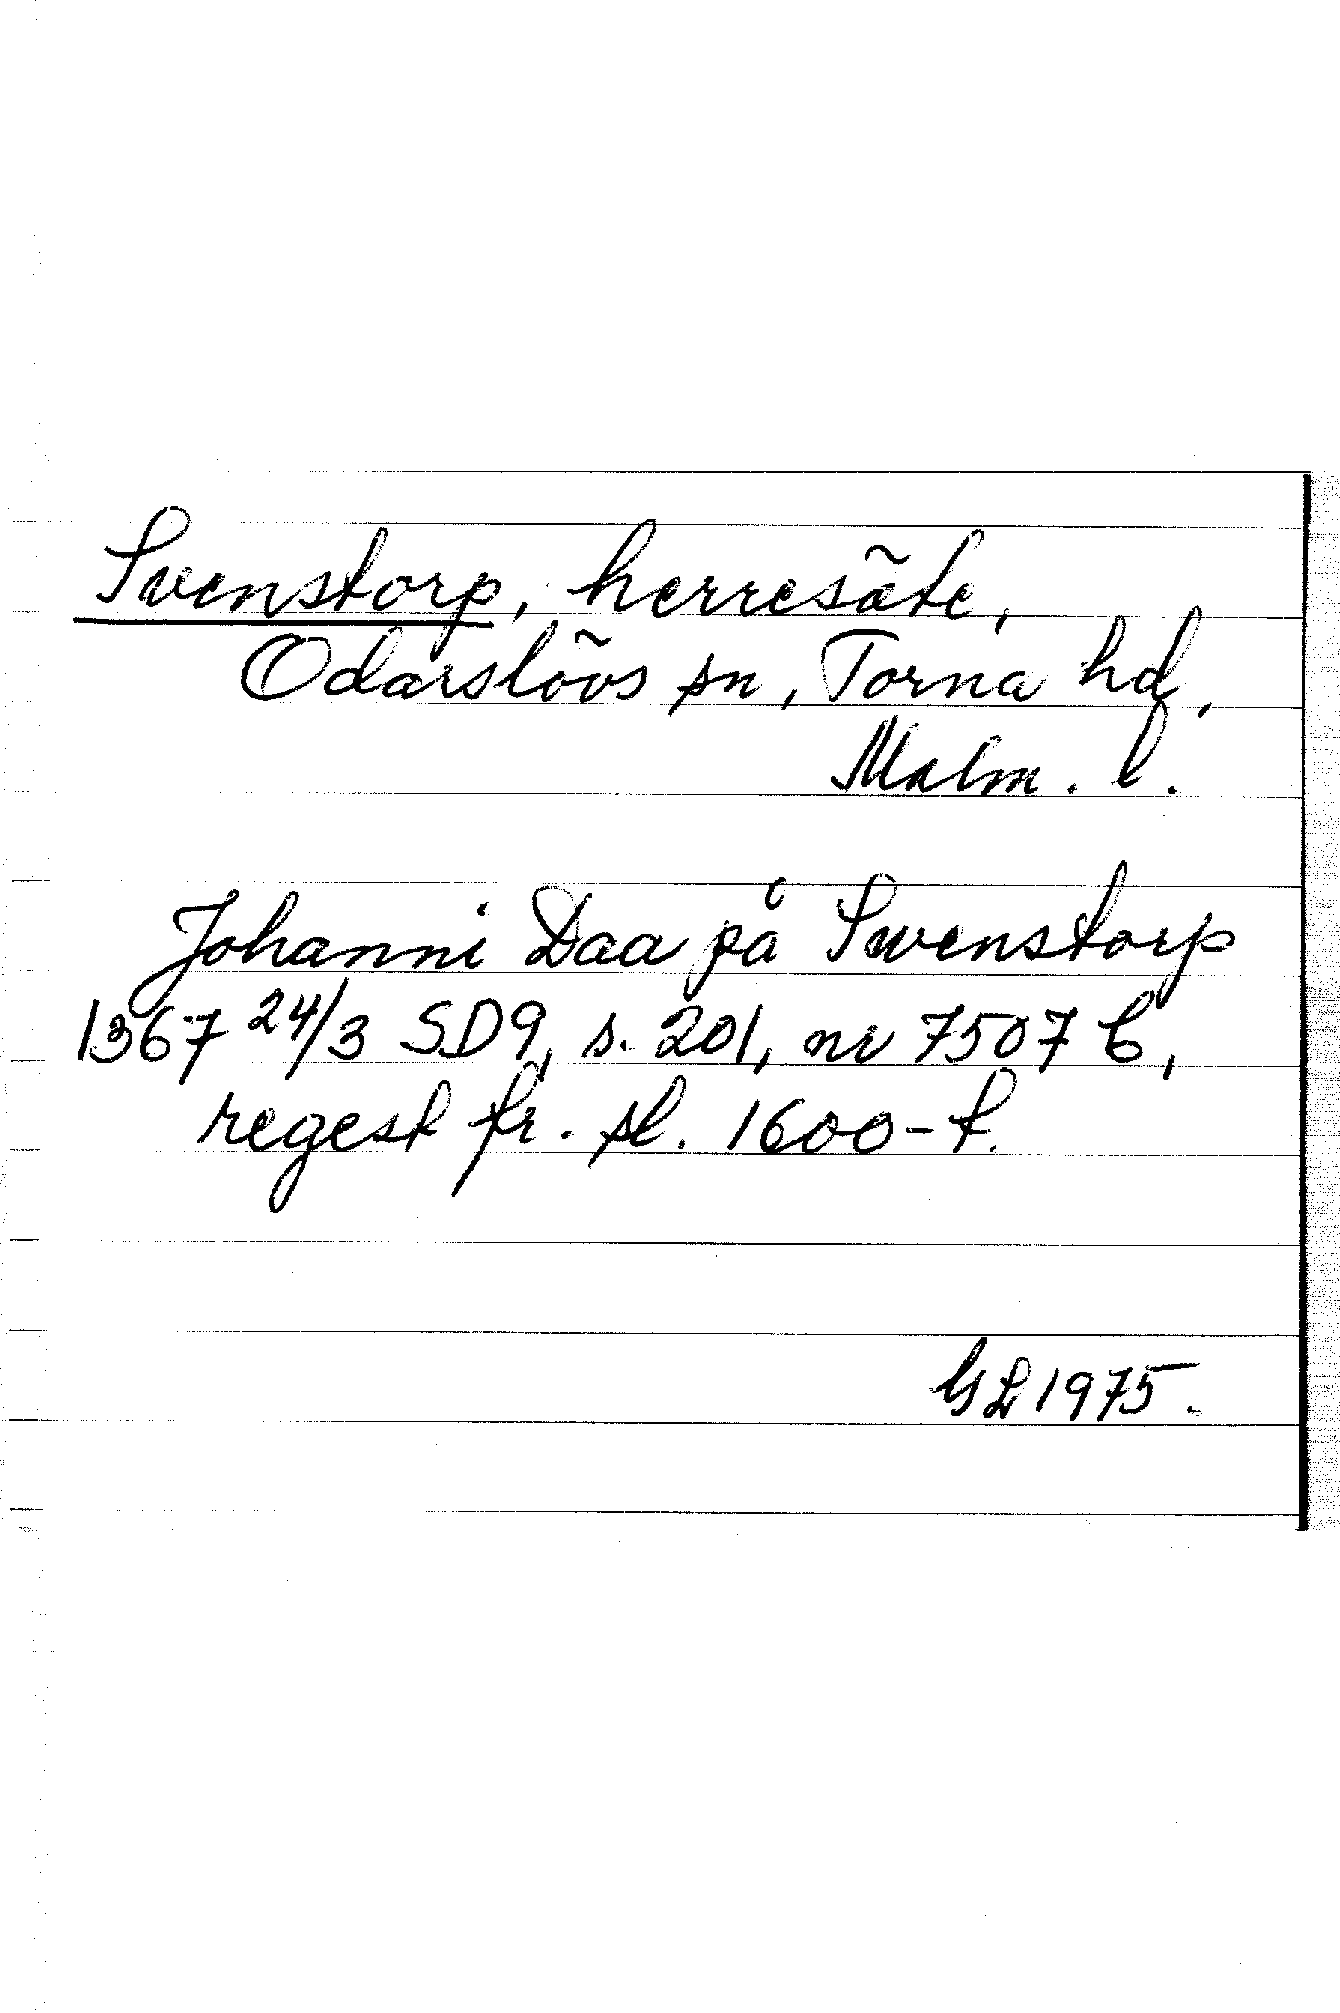 Svenstorp, herresäte,
Odarslövs sn, Torna hd,
Malm. l.
Johanni Daa på Swenstorp
1367 24/3 SD9, s. 201, nr 7507 b,
regest fr. sl. 1600-t.
GL 1975.